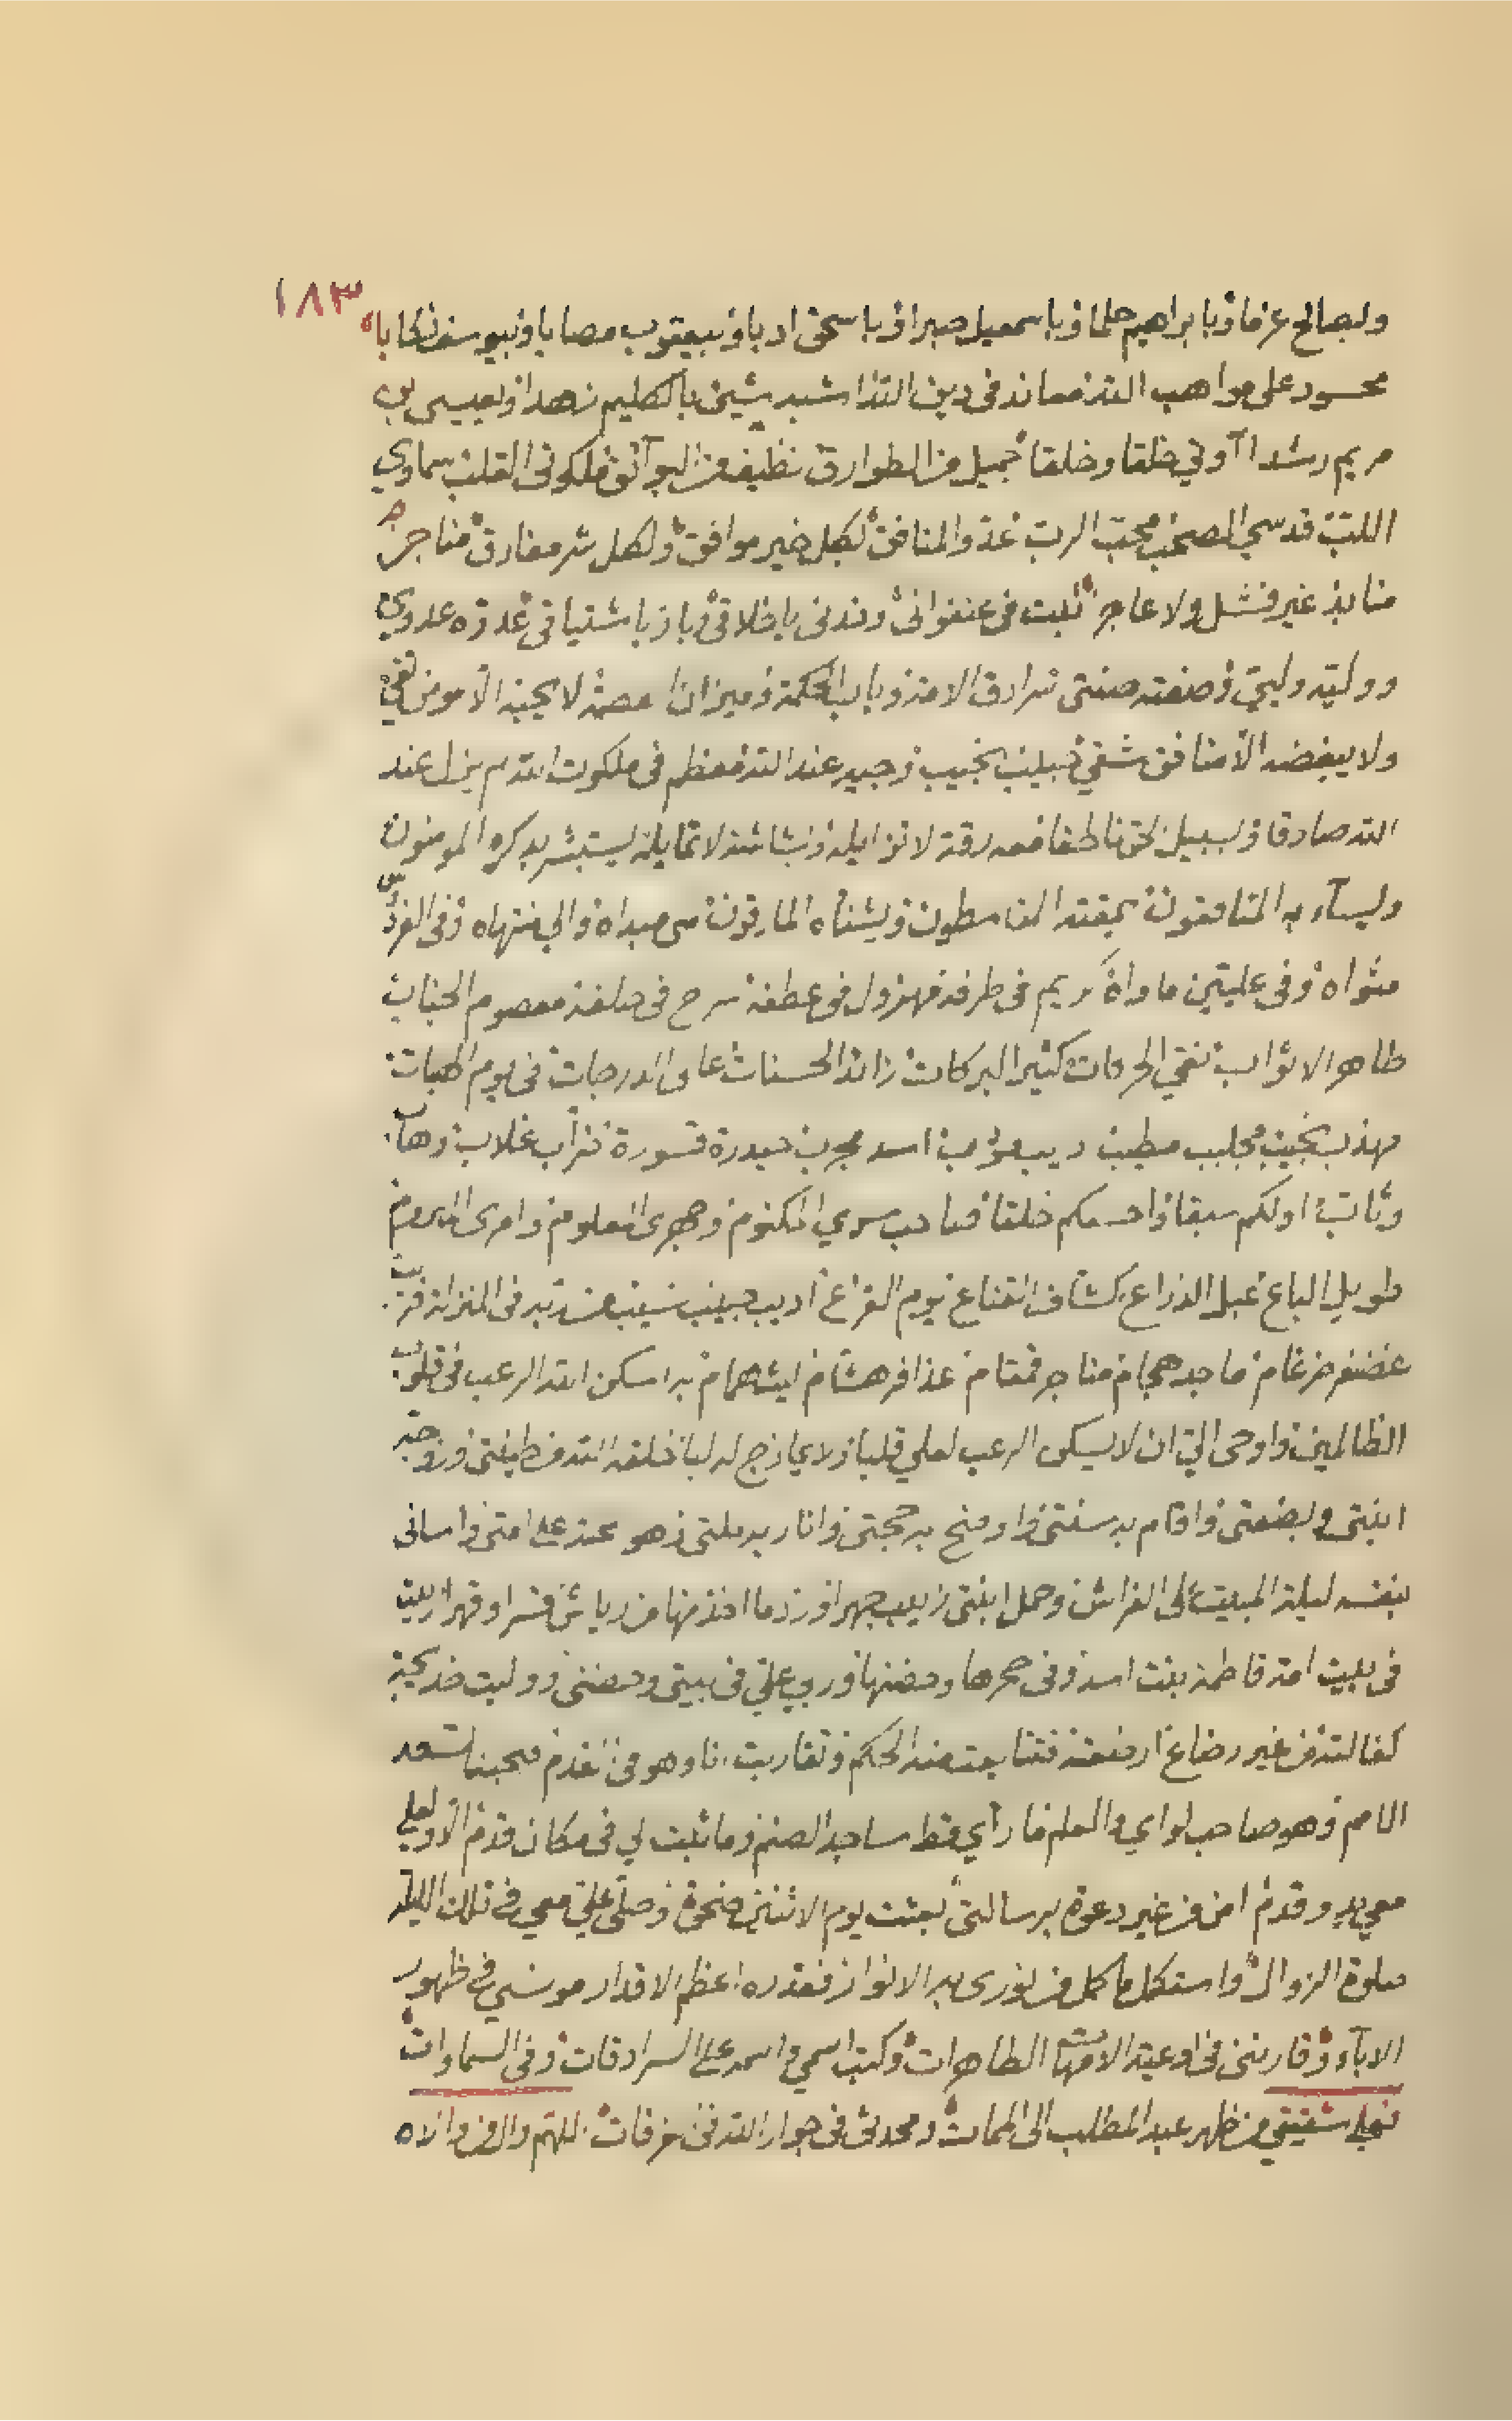 ١٨٣
ولصالح عزما وبابراهيم حلما وباسمعيل صبرا وباسحق ادبا وبيعقوب مصابا وبيوسف نكابا
محسود على مواهب الله معاند في دين الله اشبه شيئ بالكليم زهدا وبعيسى بن
مريم رشدا اوتي خلقا وخلقا جميل من الطوارق نظيف من البوائق ملكوتي القلب سماوي
اللب قدسي الصحب محب الرب عدو المنافق لكل خير موافق ولكل شر مفارق مناجز
منابذ غير فشل ولا عاجز نبت في عنفواني وغذي باخلاقي وبارز باشتياقي عدوه عدوي
ووليه وليي وصفته صفتي سرادق الامة وباب الحكمة وميزان العصمة لا يحبه الا مومن تقي
ولا يبغضه الا منافق شقي حبيب نجيب وجيه عند الله معظم في ملكوت الله لم يزل عند
الله صادقا ولسبيل الحق ناطقا معه رقة لا تزايله وبشاشة لا تمايله يستبشر بذكره المومنون
ويسآء به المنافقون يمقته القاسطون ويشناه المارقون من مبداه والى منتهاه وفي الفردوس
مثواه وفي عليين ماواه كريم في طرفه مهزول في عطفه سرح في خلقه معصوم الجناب
طاهر الاثواب نقي الحركات كثير البركات زائد الحسنات عالى الدرجات في يوم الهبات
مهذب نجيب مجلبب مطيب اديب مؤدب اسد مجرب حيدرة قسورة ضراب غلاب وهاب
وثاب اولكم سبقا واحسنكم خلقا صاحب سري المكتوم وجهري المعلوم وامري المبروم
طويل الباع عبل الذراع كشاف القناع يوم القراع اديب حبيب نسيب من ربه في المنزلة قريب
غضنفر ضرغام ماجد هجام مناجز قمقام عذافر هشام ليث همام به اسكن الله الرعب في قلوب
الظالمين واوحى الي ان لا يسكن الرعب لعلي قلبا ولا يمازج له لبا خلقه الله من طينتي وزوجه
ابنتي وبضعتي واقام به سنتي واوضح به حجتي وانار به ملتي وهو محنة على امتي واساني
بنفسه ليلة المبيت على الفراش وحمل ابنتي زينب جهرا ورد ما اخذ منها من رياش قسرا وقهرا ربيت
في بيت امه فاطمة بنت اسد وفي حجرها وحضنها وربي علي في بيتي وحضنني ووليت خديجة
كفالته من غير رضاع ارضعته فتتابعت منه الحكم وتقاربت انا وهو من القدم صحبنا تسعد
الامم وهو صاحب لواي والعلم ما رأي قط ساجد الصنم وما ثبت لي في مكان قدم الا ولعلي
معي يد وقدم امن من غير دعوة برسالتي بعثت يوم الاثنين ضحوة وصلى علي معي في تلك الليلة
صلوة الزوال واستكمل ما كمل من نوري به الانوار فقدره اعظم الاقدار مونسي في ظهور
الاباء وقارنني في اوعية الامهات الطاهرات وكتب اسمي واسمه على السرادقات وفي السماوات
فعلي شقيقي من ظهر عبد المطلب الى الممات ومحدثي في جوار الله في الغرفات اللهم وال من والاه